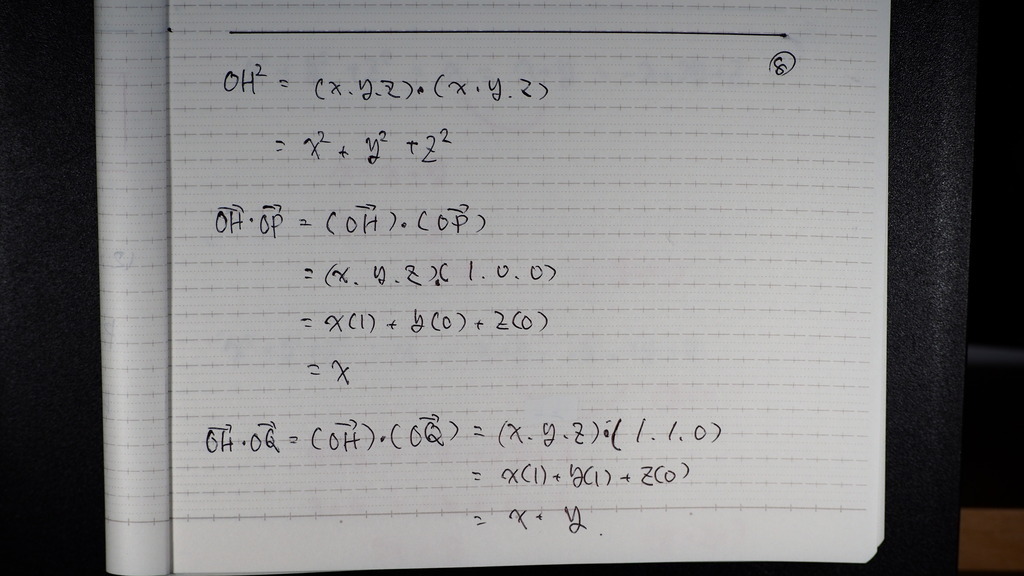 ⑧
OH² = (x.y.z)·(x.y.z)
= x² + y² + z²
OH→·OP→ = (OH→)·(OP→)
= (x.y.z)·(1.0.0)
= x(1) + y(0) + z(0)
= x
OH→·OQ→ = (OH→)·(OQ→) = (x.y.z)·(1.1.0)
= x(1) + y(1) + z(0)
= x + y.